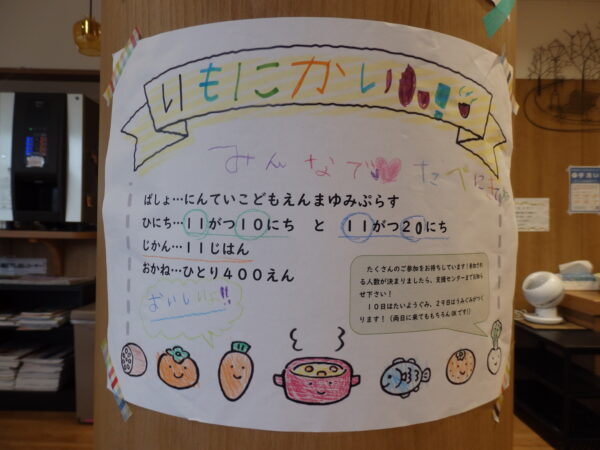 いもにかい!!
みんなで たべにきて
ばしょ…にんていこどもえんまゆみぷらす
ひにち…11がつ10にち と 11がつ20にち
じかん…11じはん
おかね…ひとり400えん
おいしいよ!!
たくさんのご参加をお待ちしています！参加され
る人数が決まりましたら、支援センターまでお知ら
せ下さい！
10日はたいようぐみ、29日はうみぐみがつく
ります！（両日に来てももちろんOKです！）